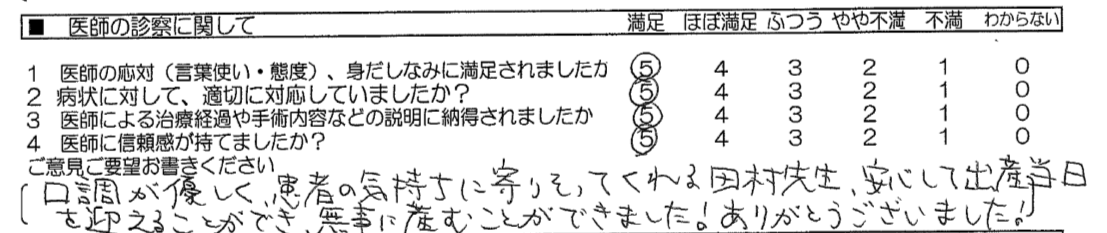 ■ 医師の診察に関して 満足 ほぼ満足 ふつう やや不満 不満 わからない
1 医師の応対（言葉使い・態度）、身だしなみに満足されましたか 5 4 3 2 1 0
2 病状に対して、適切に対応していましたか？ 5 4 3 2 1 0
3 医師による治療経過や手術内容などの説明に納得されましたか 5 4 3 2 1 0
4 医師に信頼感が持てましたか？ 5 4 3 2 1 0
ご意見ご要望お書きください
口調が優しく、患者の気持ちに寄りそってくれる田村先生、安心して出産当日
を迎えることができ、無事に産むことができました！ありがとうございました！